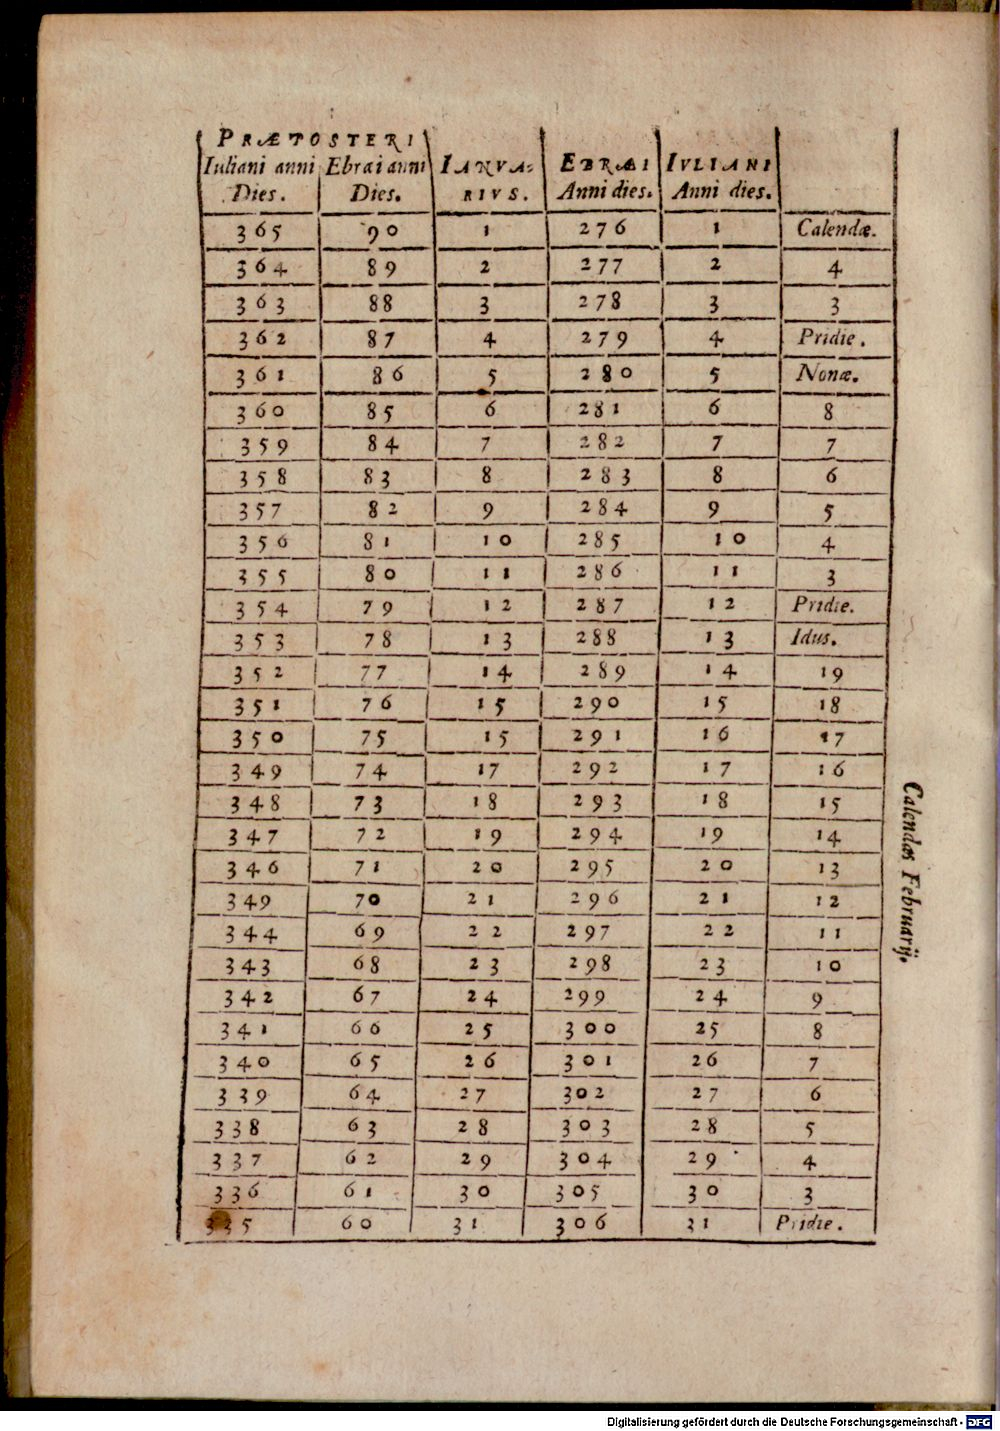 PRÆPOSTERI
Iuliani anni Ebrai anni IANVA- EBRÆI IVLIANI
Dies. Dies. RIVS. Anni dies. Anni dies.
365 90 1 276 1 Calendæ.
364 89 2 277 2 4
363 88 3 278 3 3
362 87 4 279 4 Pridie.
361 86 5 280 5 Nonæ.
360 85 6 281 6 8
359 84 7 282 7 7
358 83 8 283 8 6
357 82 9 284 9 5
356 81 10 285 10 4
355 80 11 286 11 3
354 79 12 287 12 Pridie.
353 78 13 288 13 Idus.
352 77 14 289 14 19
351 76 15 290 15 18
350 75 15 291 16 17
349 74 17 292 17 16
348 73 18 293 18 15
347 72 19 294 19 14
346 71 20 295 20 13
349 70 21 296 21 12
344 69 22 297 22 11
343 68 23 298 23 10
342 67 24 299 24 9
341 66 25 300 25 8
340 65 26 301 26 7
339 64 27 302 27 6
338 63 28 303 28 5
337 62 29 304 29 4
336 61 30 305 30 3
335 60 31 306 31 Pridie.
Calendas Februarij.
Digitalisierung gefördert durch die Deutsche Forschungsgemeinschaft - DFG